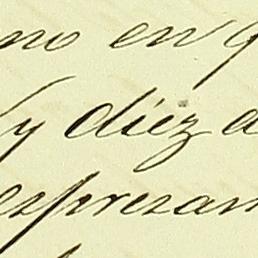 no en q
y diez a
expresam